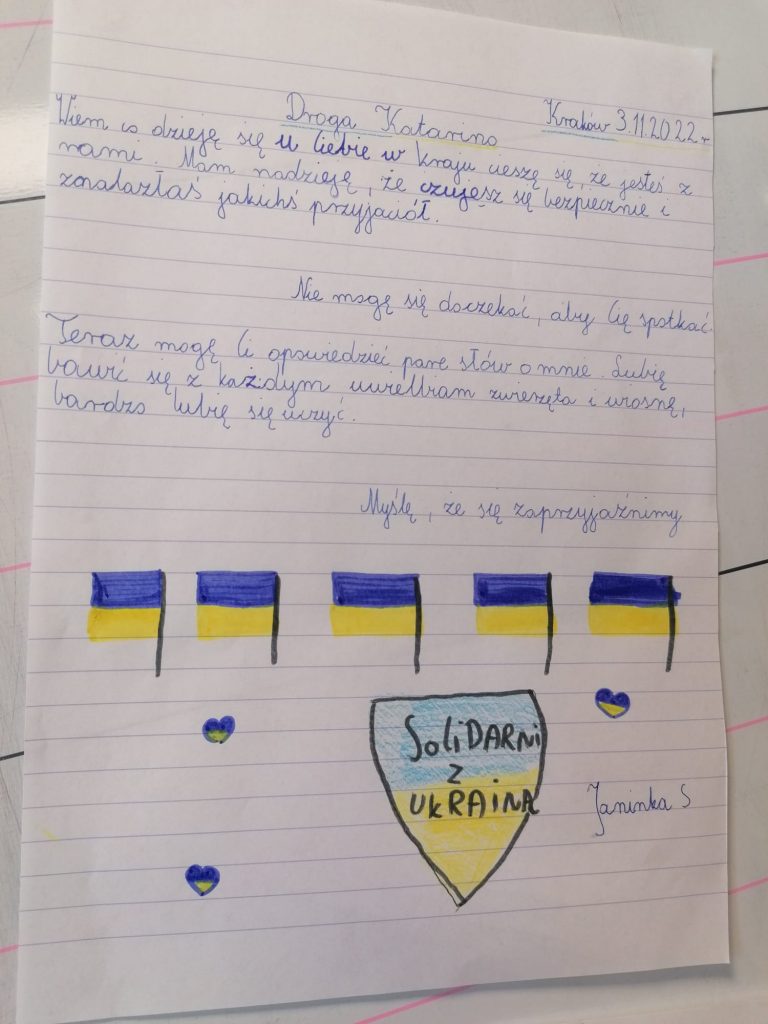 Kraków 3.11.2022r
Droga Katarino
Wiem co dzieję się u Ciebie w kraju cieszę się, że jesteś z
nami. Mam nadzieję, że czujesz się bezpiecznie i
znalazłaś jakichś przyjaciół.
Nie mogę się doczekać, aby Cię spotkać.
Teraz mogę Ci opowiedzieć parę słów o mnie. Lubię
bawić się z każdym uwielbiam zwierzęta i wiosnę,
bardzo lubię się uczyć.
Myślę, że się zaprzyjaźnimy
SoliDARNi
Z
UkRAINĄ
Janinka S